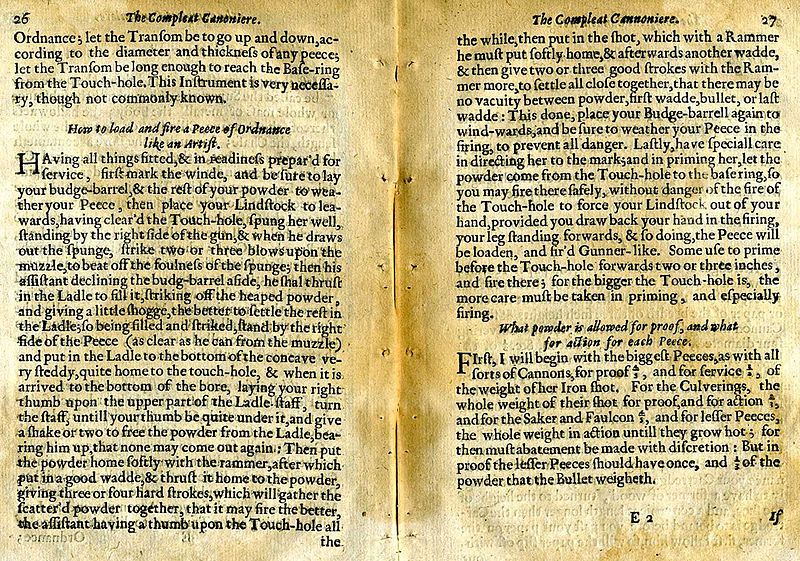 26 The Compleat Canoniere.
Ordnance; let the Transom be to go up and down, ac-
cording to the diameter and thickness of any peece;
let the Transom be long enough to reach the Base-ring
from the Touch-hole. This Instrument is very necessa-
ry, though not commonly known.
How to load and fire a Peece of Ordnance
like an Artist.
HAving all things fitted, & in readiness prepar'd for
service, first mark the winde, and be sure to lay
your budge-barrel, & the rest of your powder to wea-
ther your Peece, then place your Lindstock to lea-
wards, having clear'd the Touch-hole, spung her well,
standing by the right side of the gun, & when he draws
out the spunge, strike two or three blows upon the
muzzle, to beat off the foulness of the spunge; then his
assistant declining the budg-barrel aside, he shal thrust
in the Ladle to fill it, striking off the heaped powder,
and giving a little shogge, the better to settle the rest in
the Ladle; so being filled and striked, stand by the right
side of the Peece (as clear as he can from the muzzle)
and put in the Ladle to the bottom of the concave ve-
ry steddy, quite home to the touch-hole, & when it is
arrived to the bottom of the bore, laying your right
thumb upon the upper part of the Ladle-staff, turn
the staff, untill your thumb be quite under it, and give
a shake or two to free the powder from the Ladle, bea-
ring him up, that none may come out again: Then put
the powder home softly with the rammer, after which
put in a good wadde, & thrust it home to the powder,
giving three or four hard strokes, which will gather the
scatter'd powder together, that it may fire the better,
the assistant having a thumb upon the Touch-hole all
the
The Compleat Cannoniere. 27
the while, then put in the shot, which with a Rammer
he must put softly home, & afterwards another wadde,
& then give two or three good strokes with the Ram-
mer more, to settle all close together, that there may be
no vacuity between powder, first wadde, bullet, or last
wadde: This done, place your Budge-barrell again to
wind-wards, and be sure to weather your Peece in the
firing, to prevent all danger. Lastly, have speciall care
in directing her to the mark; and in priming her, let the
powder come from the Touch-hole to the base ring, so
you may fire there safely, without danger of the fire of
the Touch-hole to force your Lindstock out of your
hand, provided you draw back your hand in the firing,
your leg standing forwards, & so doing, the Peece will
be loaden, and fir'd Gunner-like. Some use to prime
before the Touch-hole forwards two or three inches,
and fire there; for the bigger the Touch-hole is, the
more care must be taken in priming, and especially
firing.
What powder is allowed for proof, and what
for action for each Peece.
FIrst, I will begin with the biggest Peeces, as with all
sorts of Cannons, for proof, and for service, of
the weight of her Iron shot. For the Culverings, the
whole weight of their shot for proof, and for action,
and for the Saker and Faulcon, and for lesser Peeces,
the whole weight in action untill they grow hot; for
then must abatement be made with discretion: But in
proof the lesser Peeces should have once, and of the
powder that the Bullet weigheth.
E 2 If